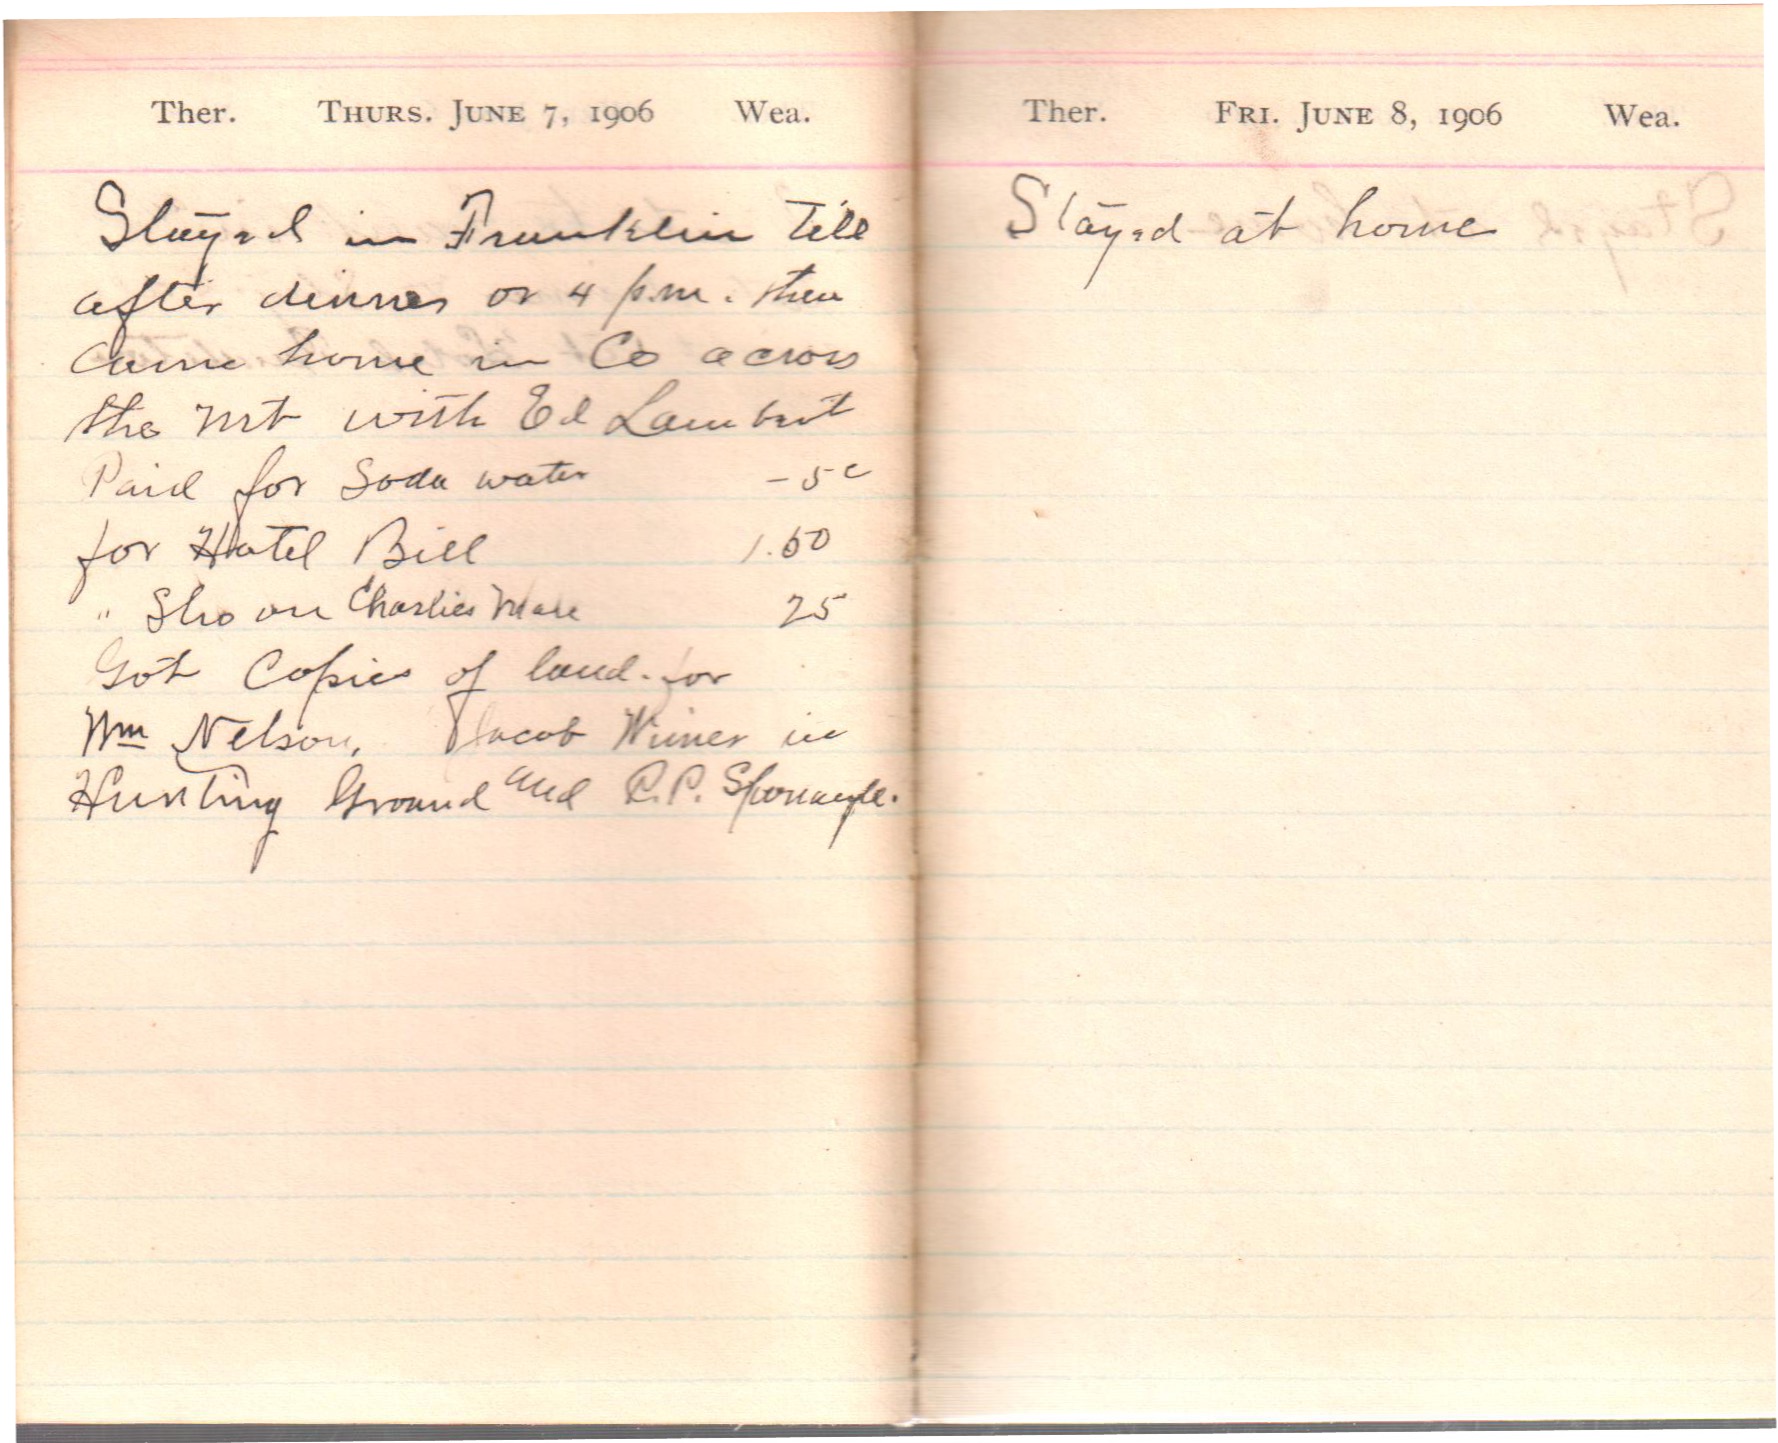 Ther. THURS. JUNE 7, 1906 Wea.
Stayed in Franklin till
after dinner or 4 p.m. then
came home in Co across
the Mt with Ed Lambert
Paid for Soda water -5c
for Hotel Bill 1.50
" Sho on Charlies Mare 25
Got Copies of land. for
Wm Nelson, Jacob Wimer in
Hunting Ground and P. P. Sponaugle.
Ther. FRI. JUNE 8, 1906 Wea.
Stayed at home